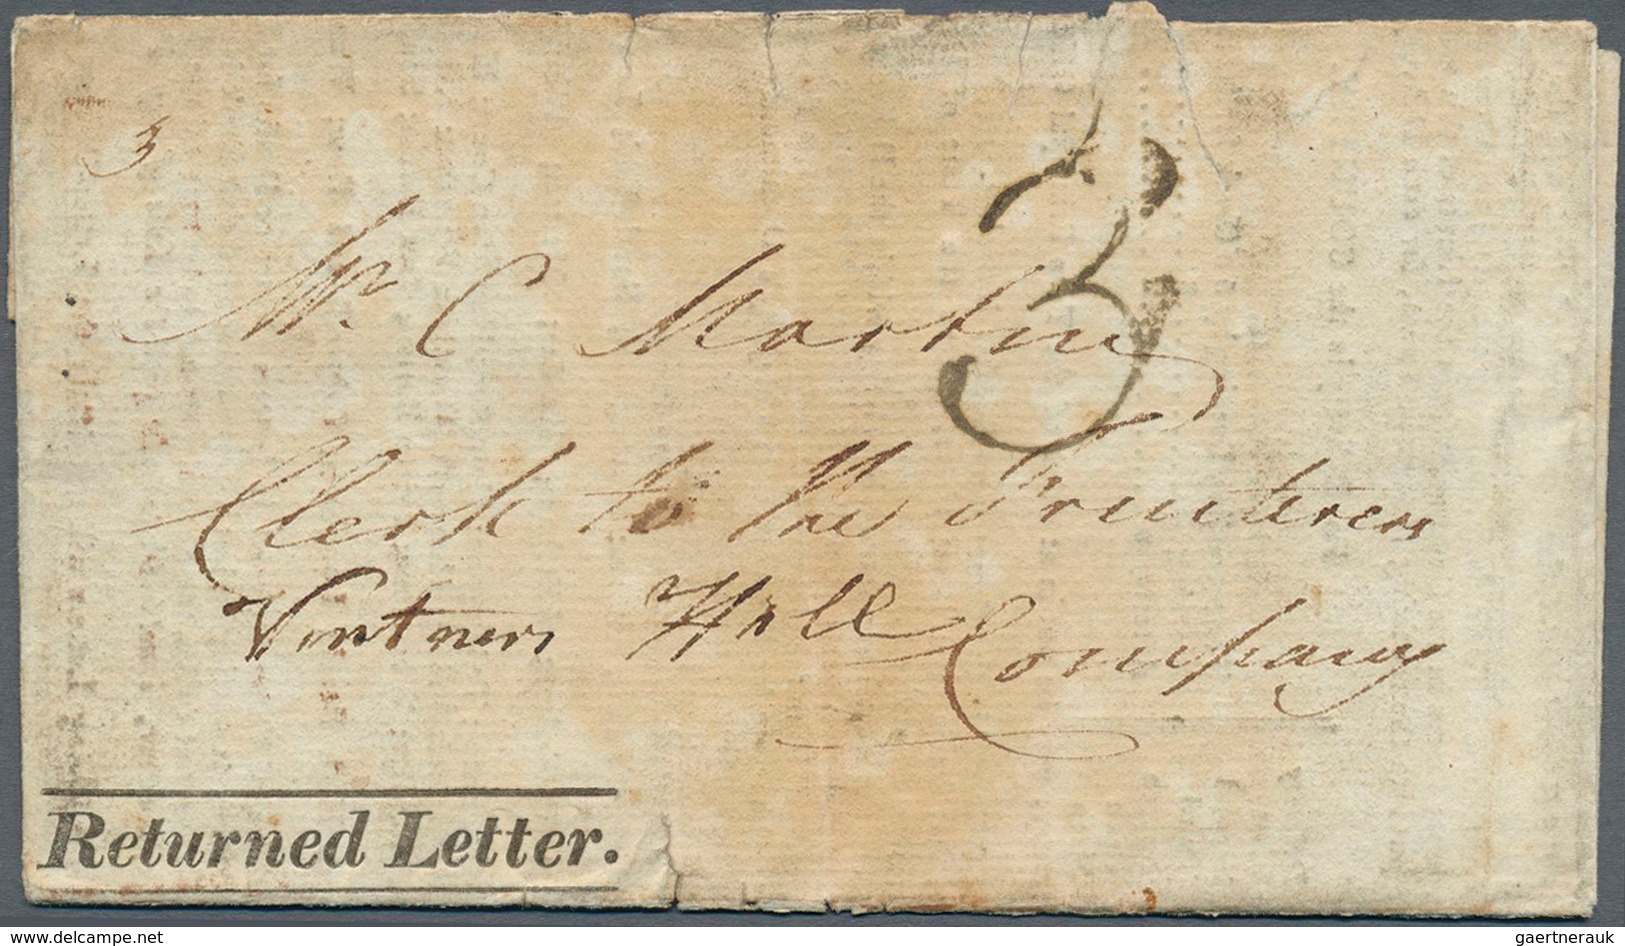 3
3
Mr. C Martin
Clerk to the Fruiterers
Vintners Hall Company
Returned Letter.
www.delcampe.net
gaertnerauk